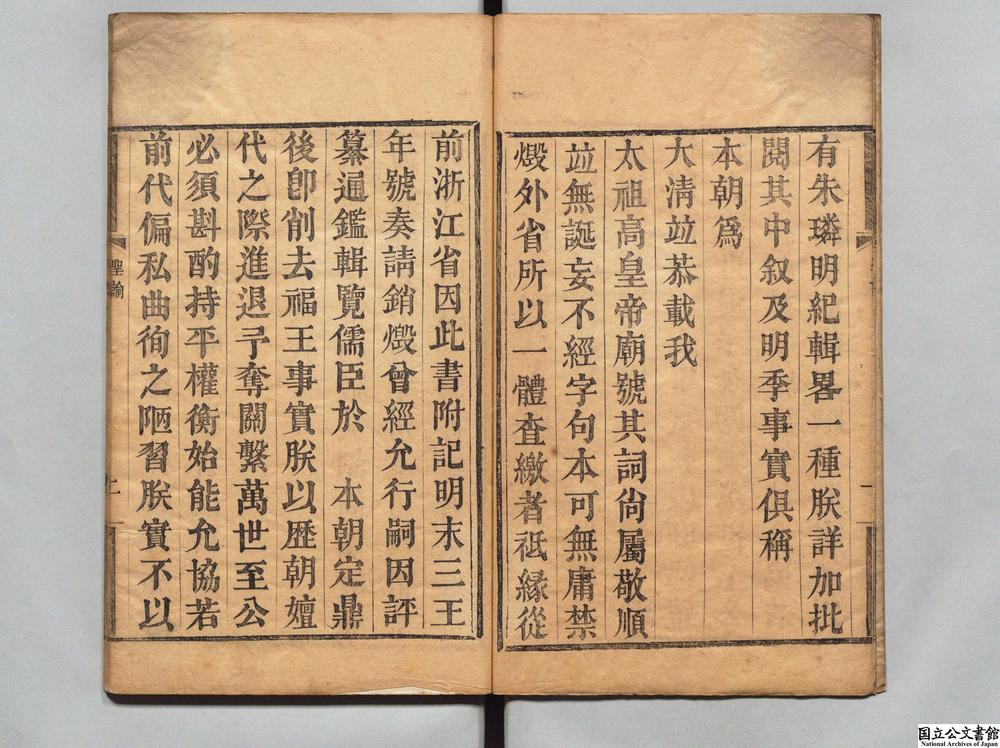 有朱璘明紀輯畧一種朕詳加批
閱其中叙及明季事實俱稱
本朝爲
大淸竝恭載我
太祖高皇帝廟號其詞尙屬敬順
竝無誕妄不經字句本可無庸禁
燬外省所以一體查繳者祗緣從
前浙江省因此書附記明末三王
年號奏請銷燬曾經允行嗣因評
纂通鑑輯覽儒臣於 本朝定鼎
後卽削去福王事實朕以歷朝嬗
代之際進退予奪關繫萬世至公
必須斟酌持平權衡始能允協若
前代偏私曲徇之陋習朕實不以
聖諭
一
二
国立公文書館
National Archives of Japan